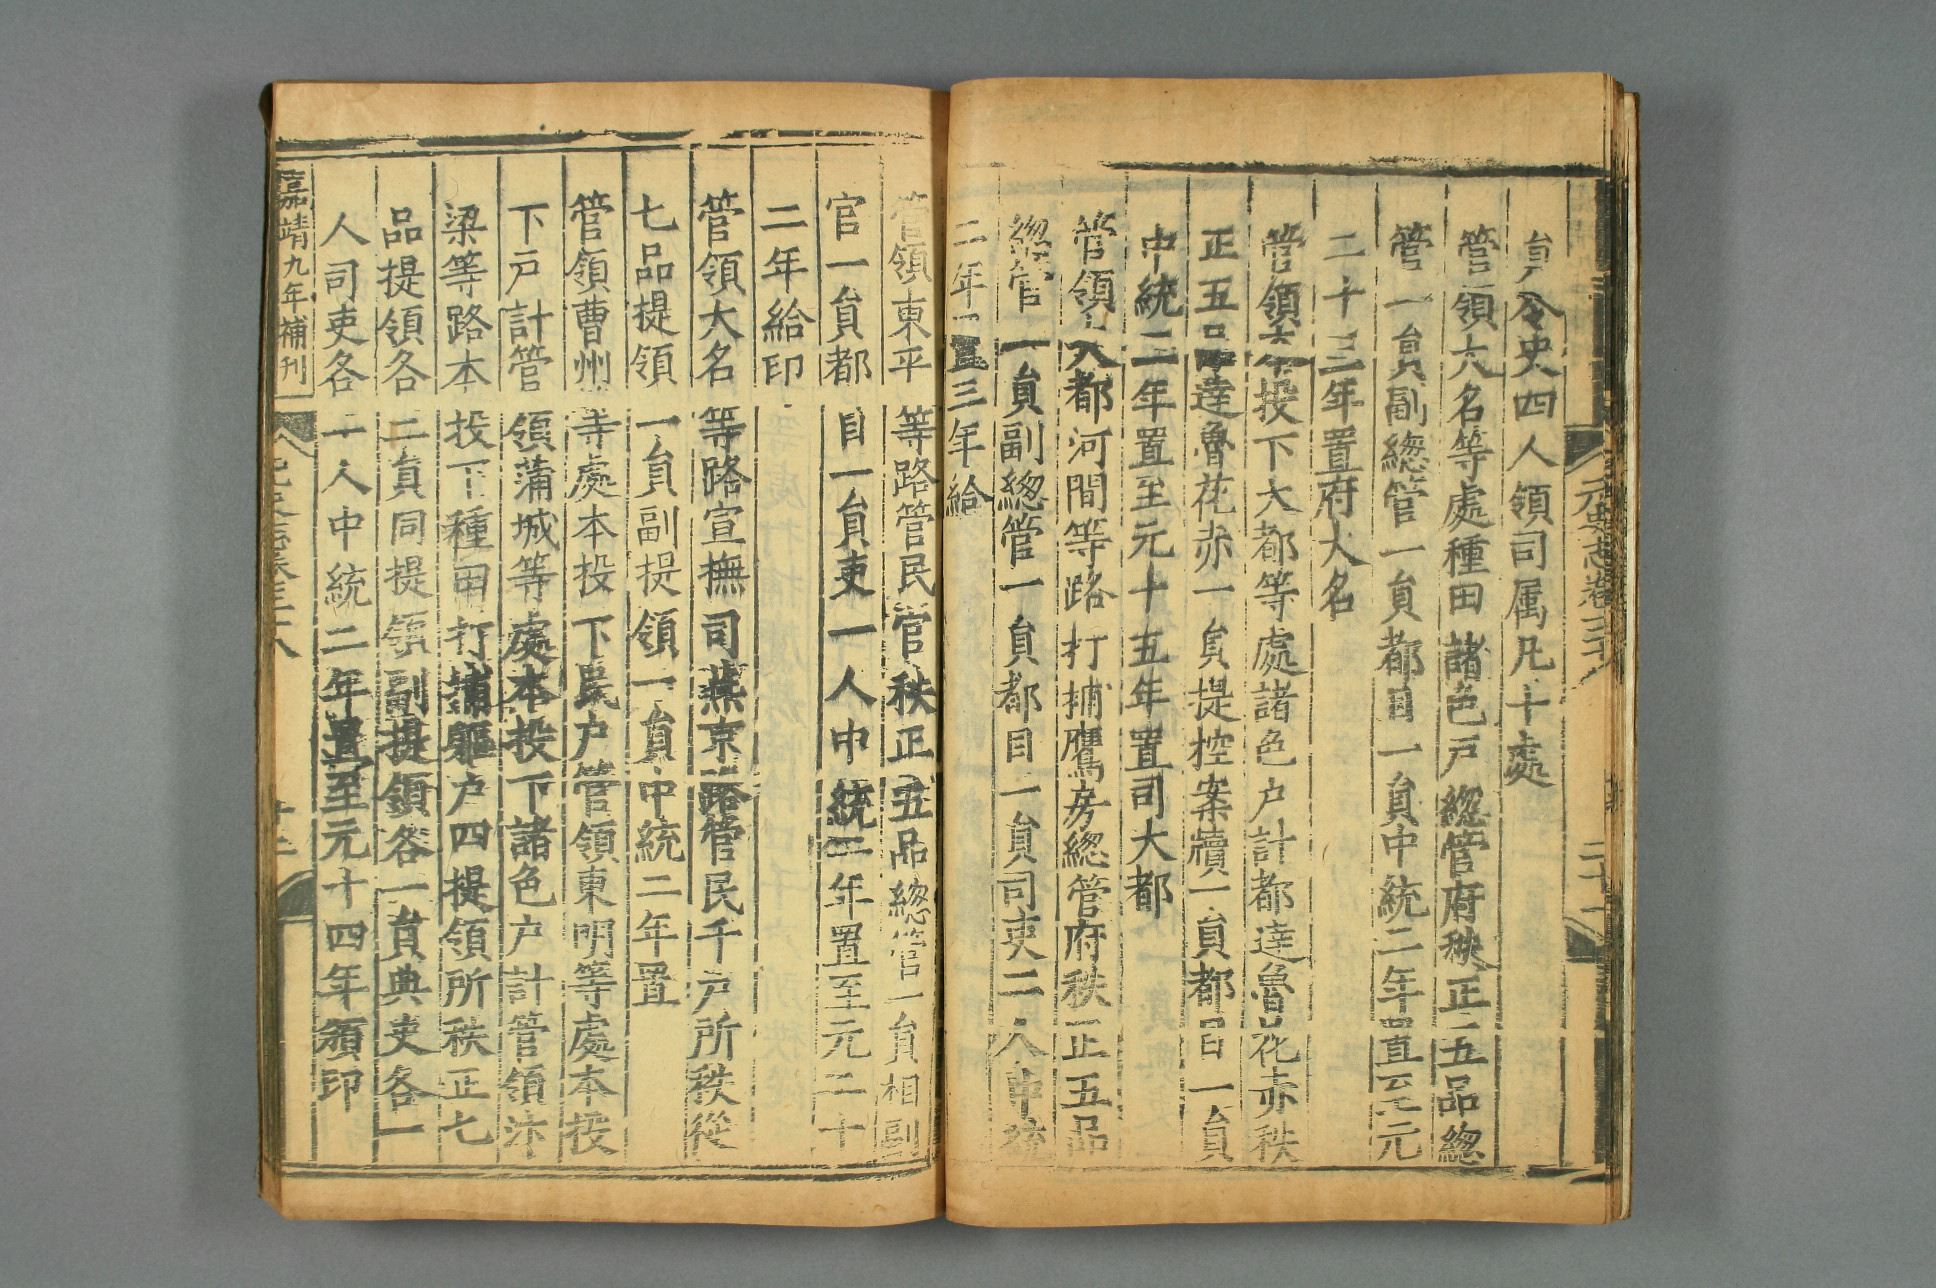 元史志卷三十
二十一
員令史四人領司属凡十處
管領六名等處種田諸色戸緫管府秩正五品緫
管一員副緫管一員都目一員中統二年置至元
二十三年置府大名
管領本投下大都等處諸色户計都達魯花赤秩
正五品達魯花赤一員提控案牘一員都目一員
中統二年置至元十五年置司大都
管領大都河間等路打捕鷹房緫管府秩正五品
緫管一員副緫管一員都目一員司吏二人中統
二年置三年給
管領東平等路管民官秩正五品緫管一員相副
官一員都目一員吏一人中統二年置至元二十
二年給印
管領大名等路宣撫司燕京路管民千户所秩從
七品提領一員副提領一員中統二年置
管領曹州等處本投下民户管領東明等處本投
下戸計管領蒲城等處本投下諸色户計管領汴
梁等路本投下種田打捕驅户四提領所秩正七
品提領各二員同提領副提領各一員典吏各一
人司吏各一人中統二年置至元十四年頒印
嘉靖九年補刊